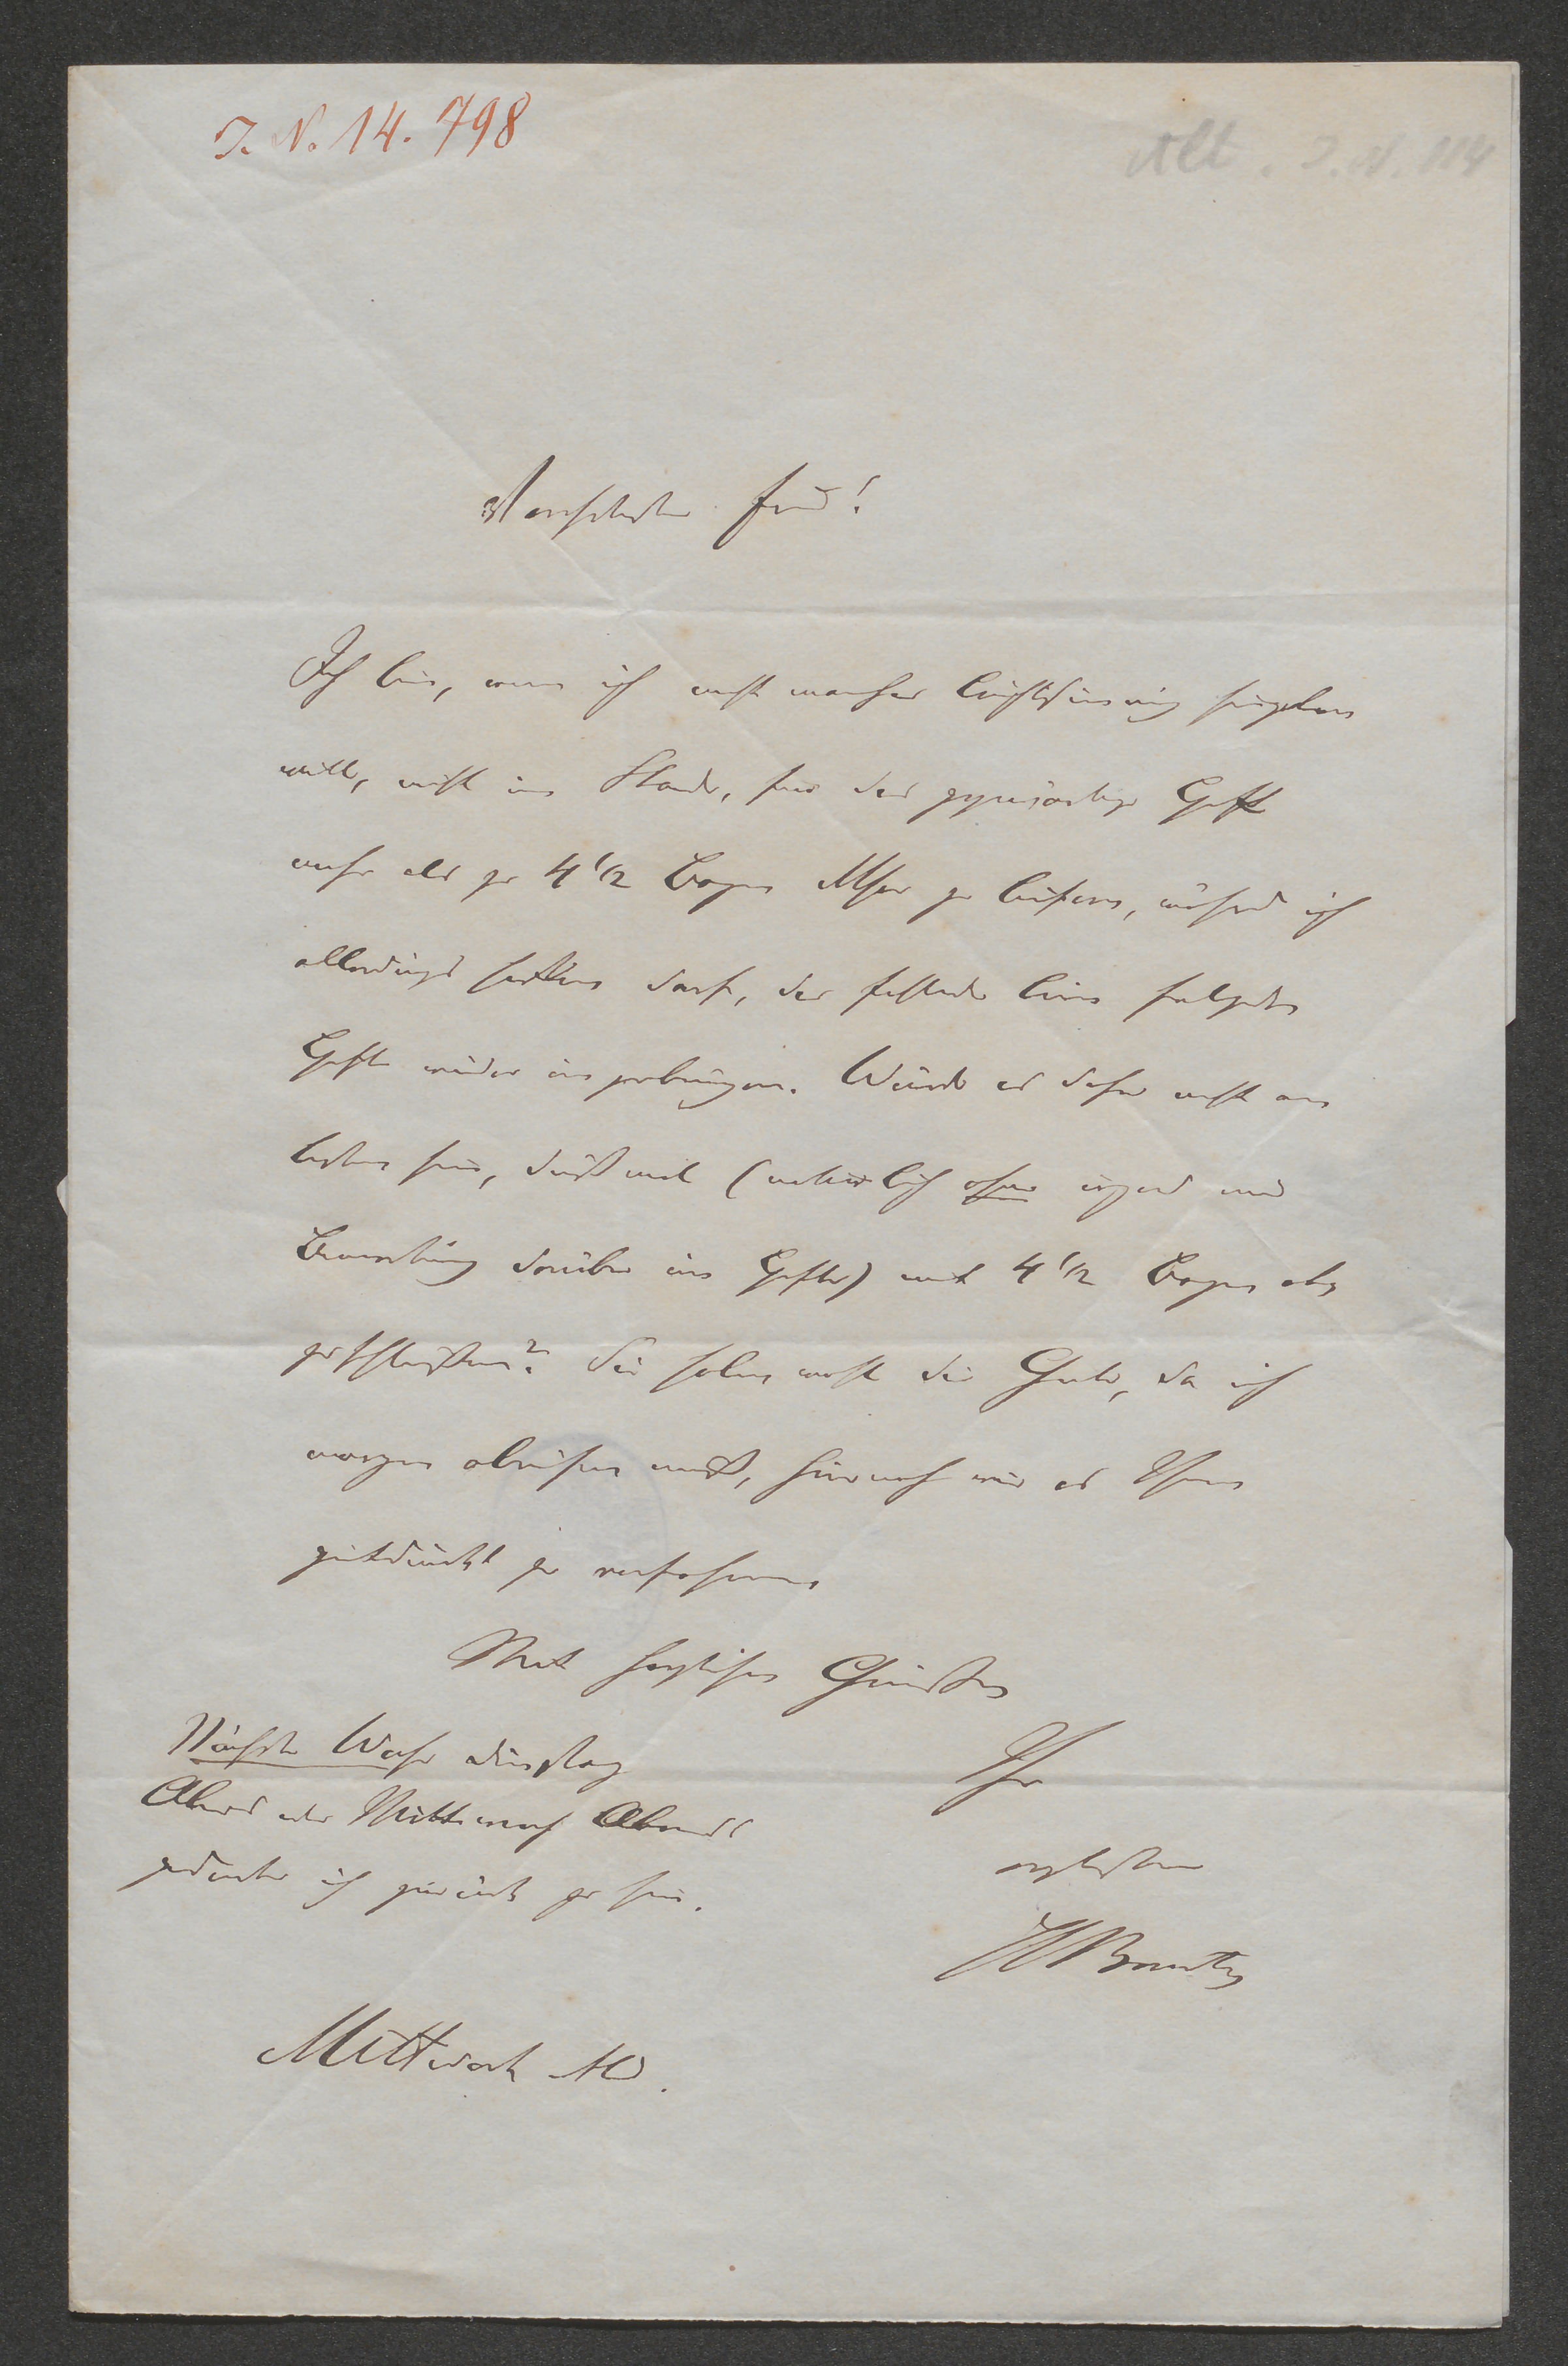 J. N. 14.798
Alt. J. N. 114
Verehrtester Freund!
Ich bin, wenn ich nicht manches leichtsinnig hingeben
will, nicht im Stande, für das gegenwärtige Heft
mehr als zu 4 1/2 Bogen Mscr zu liefern, während ich
allerdings hoffen darf, das fehlende beim folgenden
Hefte wieder einzubringen. Würde es daher nicht am
besten sein, dießmal (natürlich ohne irgend eine
Bemerkung darüber im Hefte) mit 4 1/2 Bogen ab
zuschließen? Sie haben wohl die Güte, da ich
morgen abreisen muß, hiernach wie es Ihnen
gutdünkt zu verfahren
Mit herzlichen Grüßen
Nächste Woche Dienstag
Abend oder Mittwoch Abends
gedenke ich zurück zu sein.
Ihr
ergebenster
Mittwoch 10.